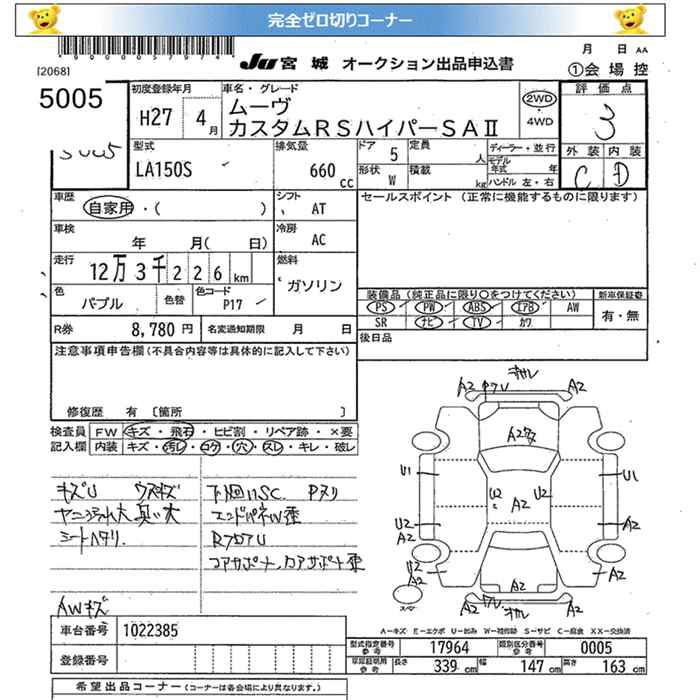 完全ゼロ切りコーナー
[2068]
JU 宮城 オークション出品申込書
月 日 AA
①会場控
5005
初度登録年月
H27 4月
車名・グレード
ムーヴ
カスタムRSハイパーSAⅡ
2WD
・
4WD
評価点
3
外装 内装
C D
型式
LA150S
排気量
660 cc
ドア 5
定員 人
形状 W
積載 kg
ディーラー・並行
モデル年式 年
ハンドル 左・右
車歴
自家用・( )
シフト
AT
セールスポイント (正常に機能するものに限ります)
車検
年 月( 日)
冷房
AC
走行
12万3千226km
燃料
ガソリン
色
パープル
色替
色コード
P17
装備品(純正品に限り○をつけてください)
新車保証書
PS PW ABS エアB AW
SR ナビ TV カワ
有・無
R券 8,780円
名変通知期限 月 日
後日品
注意事項申告欄(不具合内容等は具体的に記入して下さい)
修復歴 有 [箇所 ]
検査員記入欄
FW キズ・飛石・ヒビ割・リペア跡・×要
内装 キズ・汚レ・コゲ・穴・スレ・キレ・破レ
キズU ウスキズ
シートヘタリ
下回りSC Pヌリ
エンドパネW歪
RフロアU
コアサポート
AWキズ
A2
A2
A2
U1
U1
U2
A2
U2
U2
A2
A2
U2
A2
A2
A2
A2
A2
A-キズ E-エクボ U-凹み W-補修跡 S-サビ C-腐食 XX-交換済
車台番号 1022385
登録番号
型式指定番号参考 17964
類別区分番号参考 0005
車庫証明用参考 長さ 339 cm 幅 147 cm 高さ 163 cm
希望出品コーナー(コーナーは各会場により異なります。)